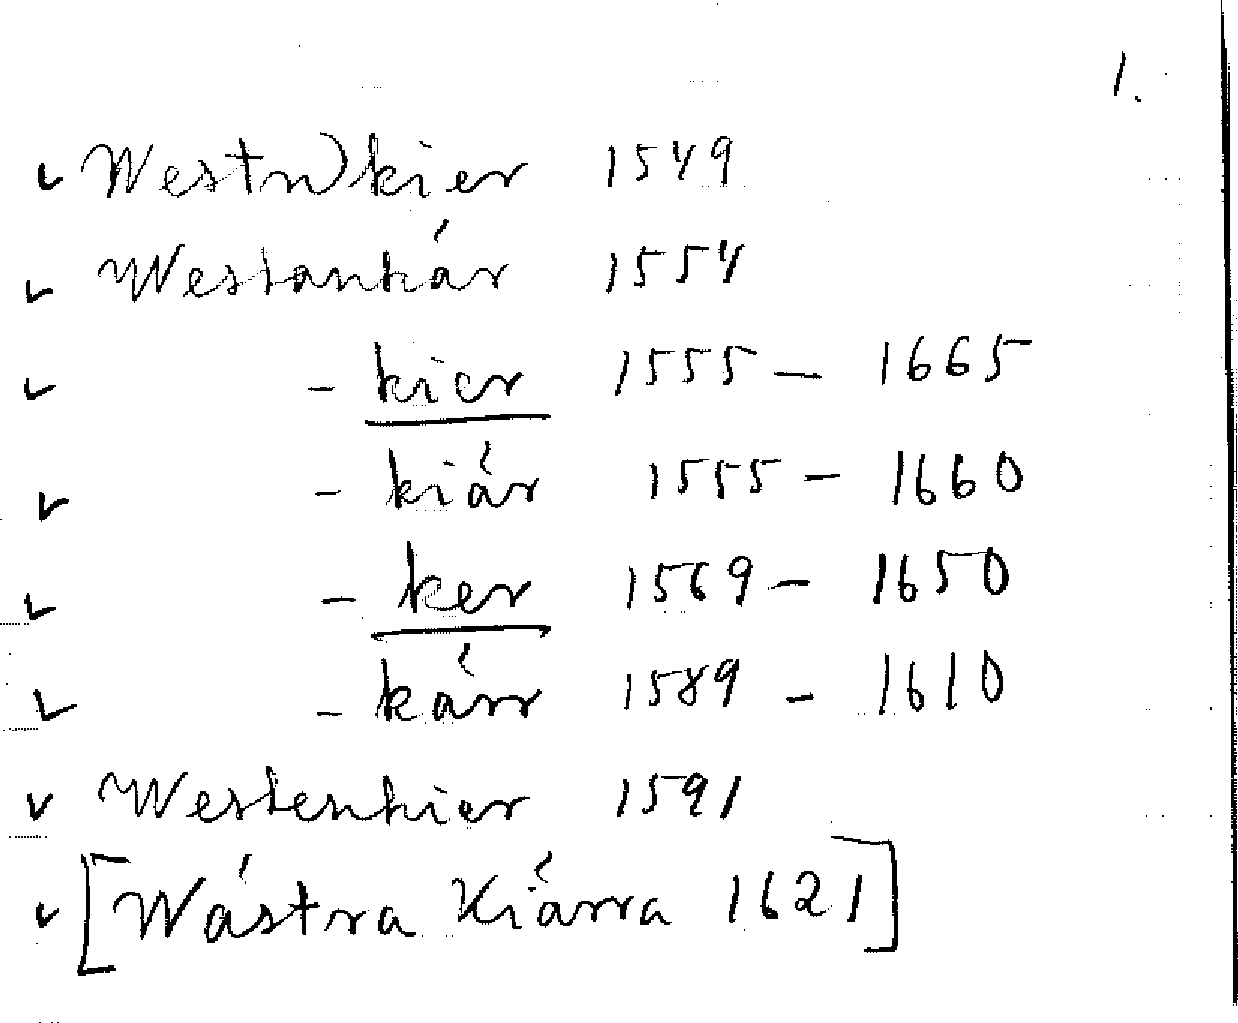 1.
✓ Westn)kier 1549
✓ Westankár 1554
✓ - kier 1555 – 1665
✓ - kiár 1555 – 1660
✓ - ker 1569 – 1650
✓ - kárr 1589 – 1610
✓ Westenkier 1591
✓ [Wástra Kiárra 1621]